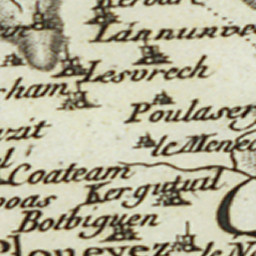 Lannunve
Lesvrech
rham
Poulaser
zit
le Menec
Coateam
Kergutuil
oas
Botbiguen
Plonevez
le N